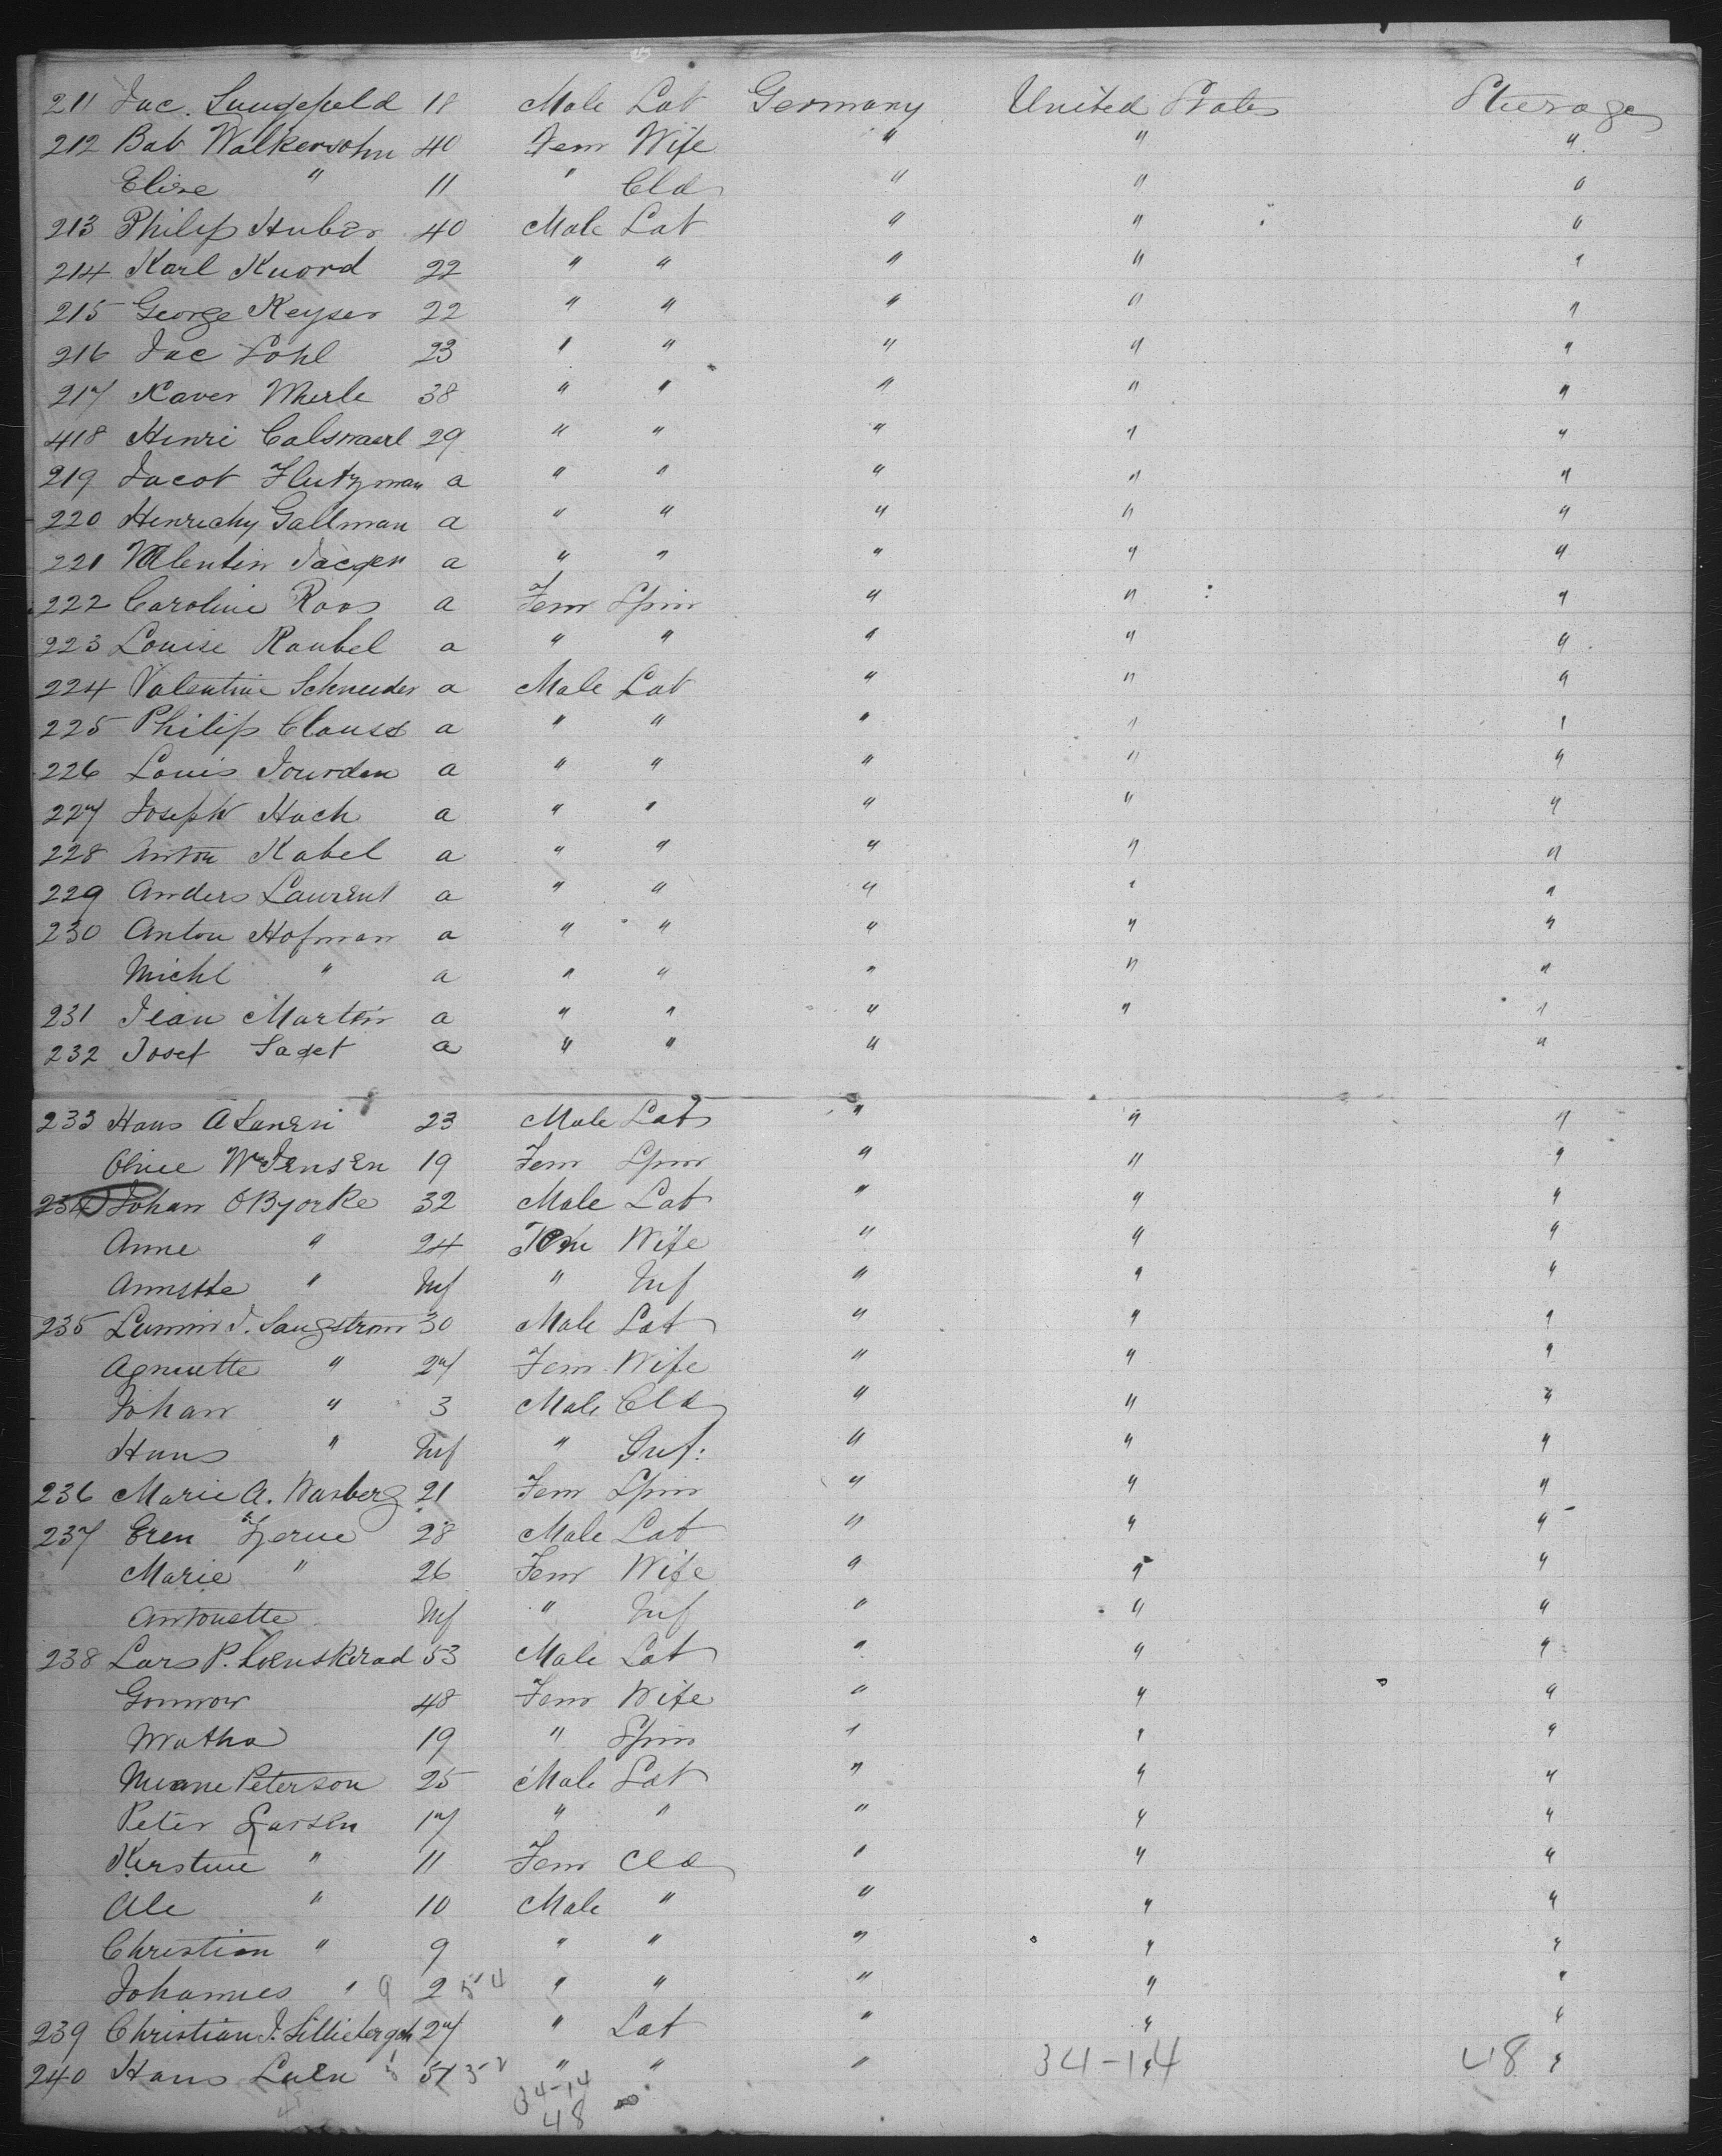 211 Jac. Lungefeld 18 Male Lab Germany United States Steerage
212 Bab Walkersohn 40 Fem Wife " " "
Elise " 11 " Cld " " "
213 Philip Huber 40 Male Lab " " "
214 Karl Knord 22 " " " " "
215 George Keyser 22 " " " " "
216 Jac Lohl 23 " " " " "
217 Xaver Merle 38 " " " " "
418 Henri 29 " " " " "
219 Jacob Hutzman a " " " " "
220 Henrichy Gallman a " " " " "
221 Valentin Jaeger a " " " " "
222 Caroline Roos a Fem Spin " " "
223 Louise Raubel a " " " " "
224 Valentine Schneeder a Male Lab " " "
225 Philip Clauss a " " " " "
226 Louis Jourdan a " " " " "
227 Joseph Hach a " " " " "
228 Anton Kabel a " " " " "
229 Anders Laurent a " " " " "
230 Anton Hofman a " " " " "
Michl " a " " " " "
231 Jean Martin a " " " " "
232 Josef Saget a " " " "
233 Hans A 23 Male Lab " " "
Olive Wm Jensen 19 Fem Spin " " "
234 Johan O Byorke 32 Male Lab " " "
Anne " 24 Fem Wife " " "
Annette " Inf " Inf " " "
235 J. Langstrom 30 Male Lab " " "
Agnuette " 27 Fem Wife " " "
Johan " 3 Male Cld " " "
Hans " Inf " Inf: " " "
236 Marie A. Warberg 21 Fem Spin " " "
237 Eren 28 Male Lab " " "
Marie " 26 Fem Wife " " "
Antonette Inf " Inf " " "
238 Lars P. 53 Male Lab " " "
Gonnow 48 Fem Wife " " "
Matha 19 " Spin " " "
Peterson 25 Male Lab " " "
Peter Larsen 17 " " " " "
Kerstine " 11 Fem Cld " " "
Ole " 10 Male " " " "
Christian " 9 " " " " "
Johannes " 9 2 54 " " " " "
239 Christian J. 27 " Lab " " "
240 Hans 51 " " " 34-14 48 "
34-14
48